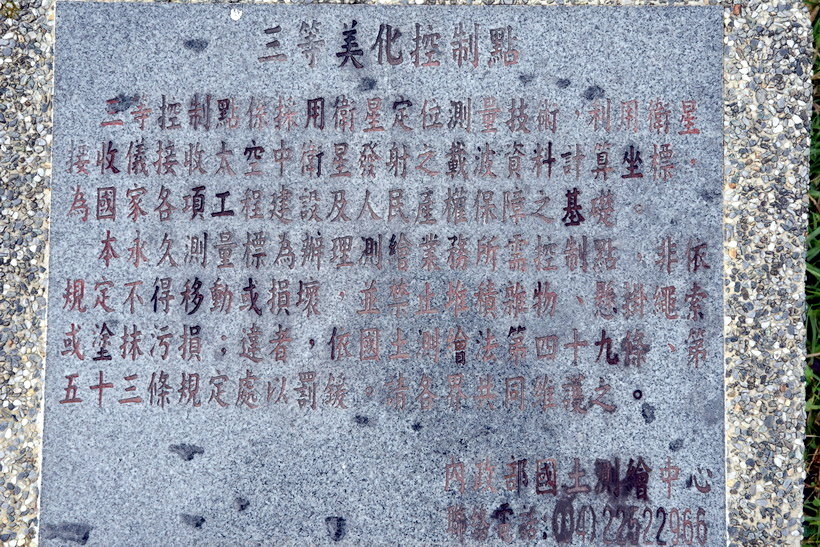 三等美化控制點
三等控制點係採用衛星定位測量技術，利用衛星
接收儀接收太空中衛星發射之載波資料計算坐標，
為國家各項工程建設及人民產權保障之基礎。
本永久測量標為辦理測繪業務所需控制點，非依
規定不得移動或損壞，並禁止堆積雜物、懸掛繩索
或塗抹污損；違者，依國土測繪法第四十九條、第
五十三條規定處以罰鍰，請各界共同維護之。
內政部國土測繪中心
聯絡電話:(04)22522966